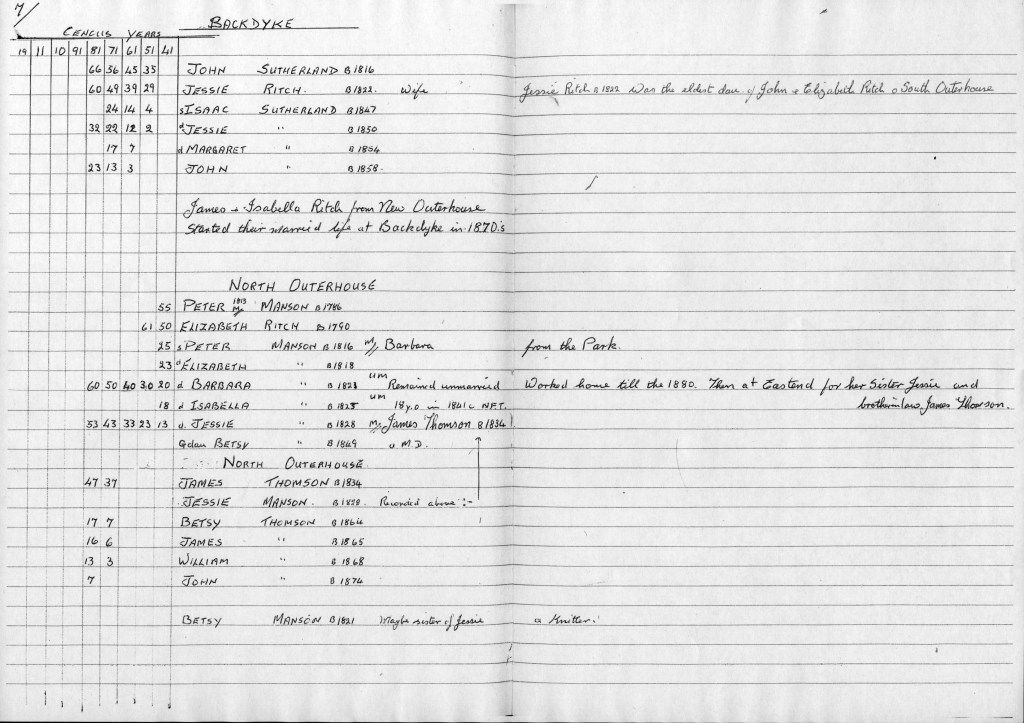 7/
BACKDYKE
CENCUS YEARS
19 11 10 91 81 71 61 51 41
66 56 45 35 JOHN SUTHERLAND B 1816
60 49 39 29 JESSIE RITCH. B 1822. Wife Jessie Ritch B 1822 was the eldest dau. of John & Elizabeth Ritch o South Outerhouse
24 14 4 s ISAAC SUTHERLAND B 1847
32 22 12 2 d JESSIE " B 1850
17 7 d MARGARET " B 1854
23 13 3 JOHN " B 1858.
James & Isabella Ritch from New Outerhouse
Started their married life at Backdyke in 1870's
NORTH OUTERHOUSE
55 PETER 1813 M/ MANSON B 1786
61 50 ELIZABETH RITCH B 1790
25 s PETER MANSON B 1816 M// Barbara from the Park.
23 d ELIZABETH " B 1818
60 50 40 30 20 d BARBARA " B 1821 um Remained unmarried Worked home till the 1880. Then at Eastend for her Sister Jessie and
18 d ISABELLA " B 1823 um 18 y.o in 1841 c N.F.T. brotherinlaw James Thomson.
53 43 33 23 13 d. JESSIE " B 1828 M/ James Thomson B 1834
Gdau BETSY " B 1849 o M.D.
NORTH OUTERHOUSE.
47 37 JAMES THOMSON B 1834
JESSIE MANSON. B 1828. Recorded above :-
17 7 BETSY THOMSON B 1864
16 6 JAMES " B 1865
13 3 WILLIAM " B 1868
7 JOHN " B 1874
BETSY MANSON B 1821 Maybe sister of Jessie a Knitter.